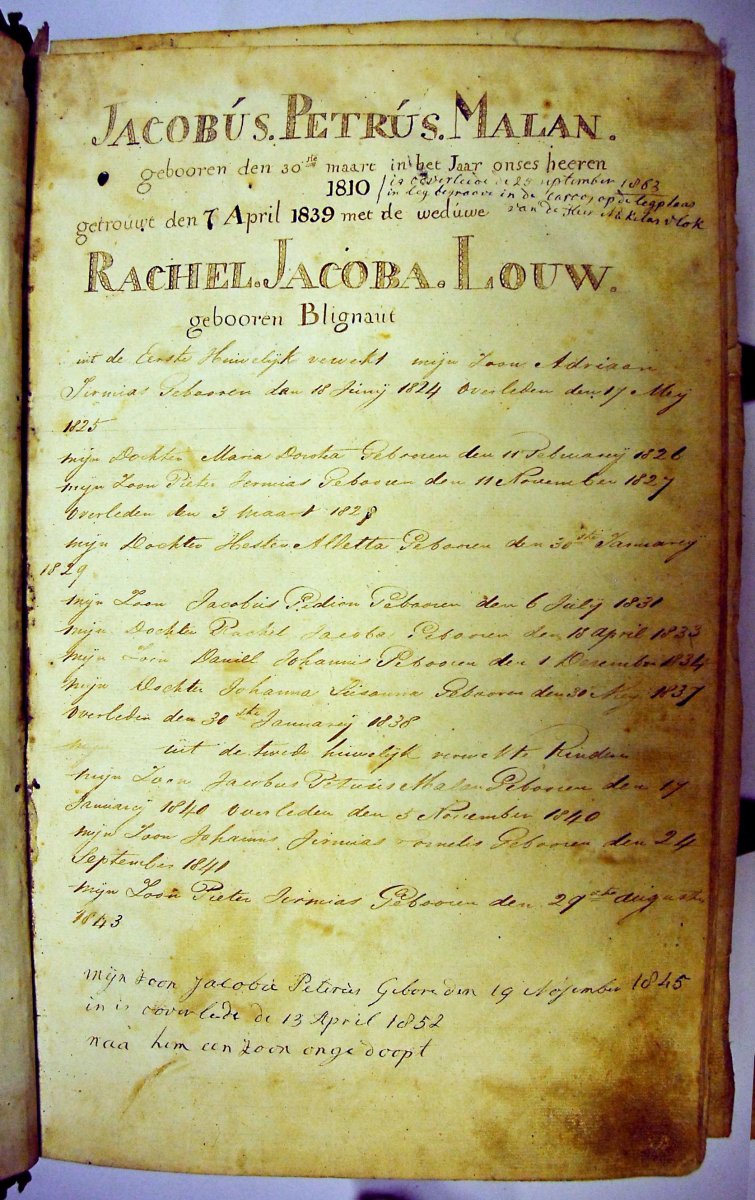 JACOBÚS. PETRÚS. MALAN.
gebooren den 30ste maart in het Jaar onses heeren
1810 / is ooverleede de 29 September 1863
in leg begraave in de op de legplaas
getrouwt den 7 April 1839 met de wedúwe van de Heer Vlok
RACHEL. JACOBA. LOUW.
gebooren Blignaut
uit de Eerste Huwelijk verwekt mijn Zoon Adriaan
Jirmias Gebooren den 18 Junij 1824 Overleden den 17 Meij
1825
mijn Dochter Maria Gebooren den 11 Februarij 1826
mijn Zoon Pieter Jermias Gebooren den 11 November 1827
Overleden den 3 maart 1828
mijn Dochter Hester Alletta Gebooren den 30ste Januarij
1829
mijn Zoon Jacobus Gebooren den 6 Julij 1831
mijn Dochter Rachel Jacoba Gebooren den 18 April 1833
mijn Zoon Daniel Johannis Gebooren den 1 Desember 1834
mijn Dochter Johanna Susanna Gebooren den 30 Mey 1837
Overleden den 30ste Januarij 1838
uit de twede huwelijk verwekte Kinders
mijn Zoon Jacobus Petrus Malan Gebooren den 17
Januarij 1840 Overleden den 5 November 1840
mijn Zoon Johannis Jirmias Cornelis Gebooren den 24
September 1841
mijn Zoon Pieter Jirmias Gebooren den 29ste augustus
1843
mijn zoon Jacobis Peterus Gebore den 19 November 1845
in is ooverlede de 13 April 1852
naa hem een zoon ongedoopt